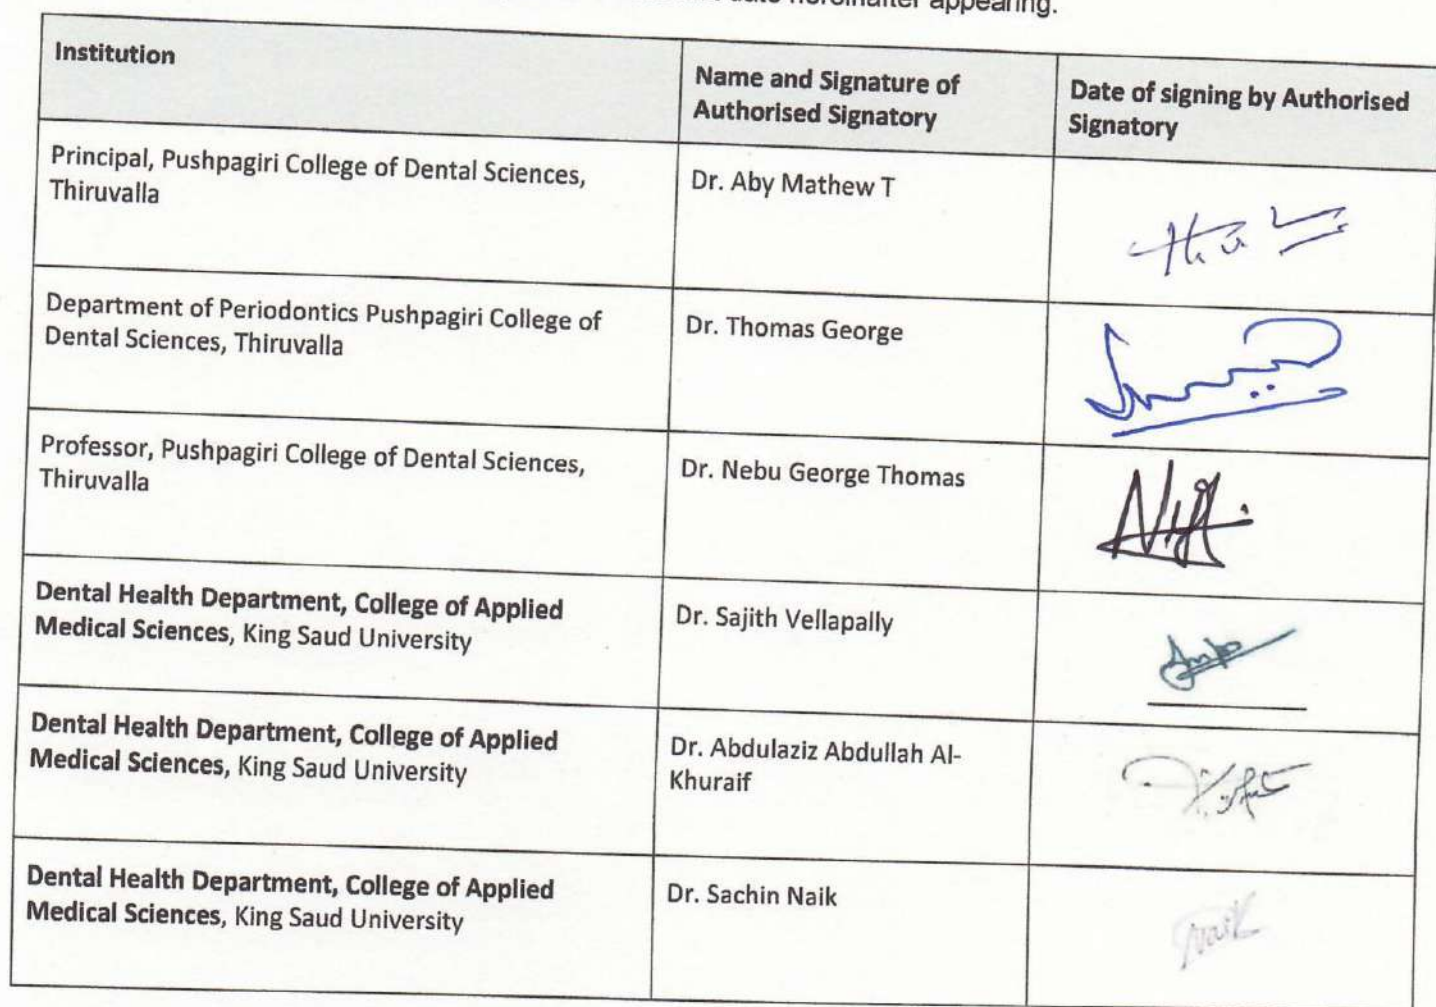 hereinafter appearing.
Institution
Name and Signature of
Authorised Signatory
Date of signing by Authorised
Signatory
Principal, Pushpagiri College of Dental Sciences,
Thiruvalla
Dr. Aby Mathew T
Department of Periodontics Pushpagiri College of
Dental Sciences, Thiruvalla
Dr. Thomas George
Professor, Pushpagiri College of Dental Sciences,
Thiruvalla
Dr. Nebu George Thomas
Dental Health Department, College of Applied
Medical Sciences, King Saud University
Dr. Sajith Vellapally
Dental Health Department, College of Applied
Medical Sciences, King Saud University
Dr. Abdulaziz Abdullah Al-
Khuraif
Dental Health Department, College of Applied
Medical Sciences, King Saud University
Dr. Sachin Naik
Naik